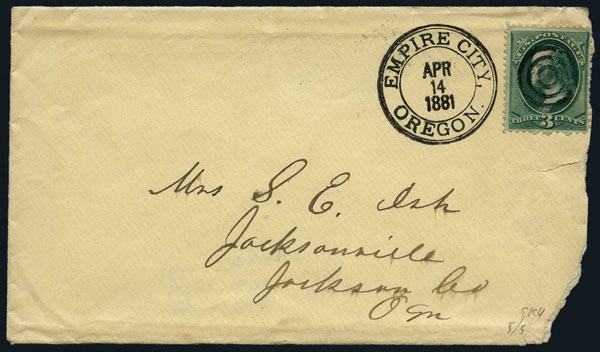 EMPIRE CITY,
APR
14
1881
OREGON.
U.S. POSTAGE
THREE 3 CENTS
Mrs S. E. Ish
Jacksonville
Jackson Co
Ogn
5/5